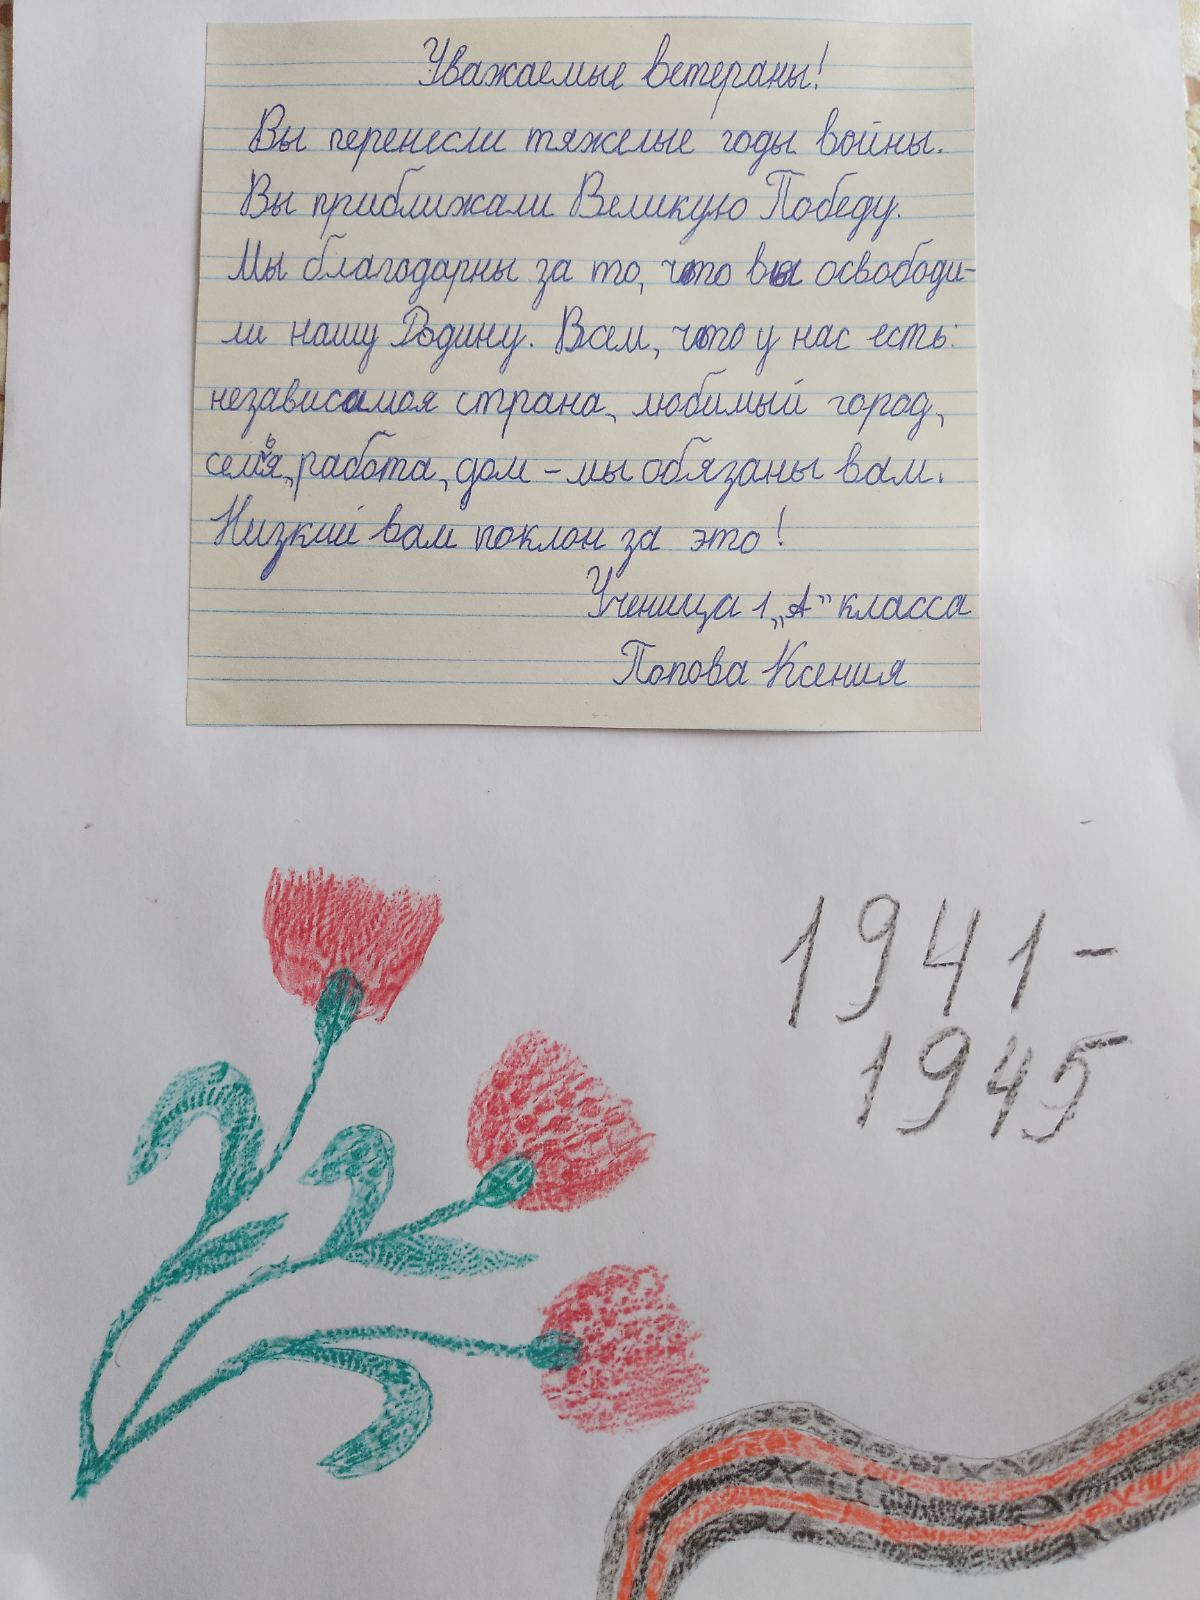 Уважаемые ветераны!
Вы перенесли тяжелые годы войны.
Вы приближали Великую Победу.
Мы благодарны за то, что вы освободи-
ли нашу Родину. Всем, что у нас есть:
независимая страна, любимый город,
семья, работа, дом – мы обязаны вам.
Низкий вам поклон за это!
Ученица 1 „А" класса
Попова Ксения
1941-
1945